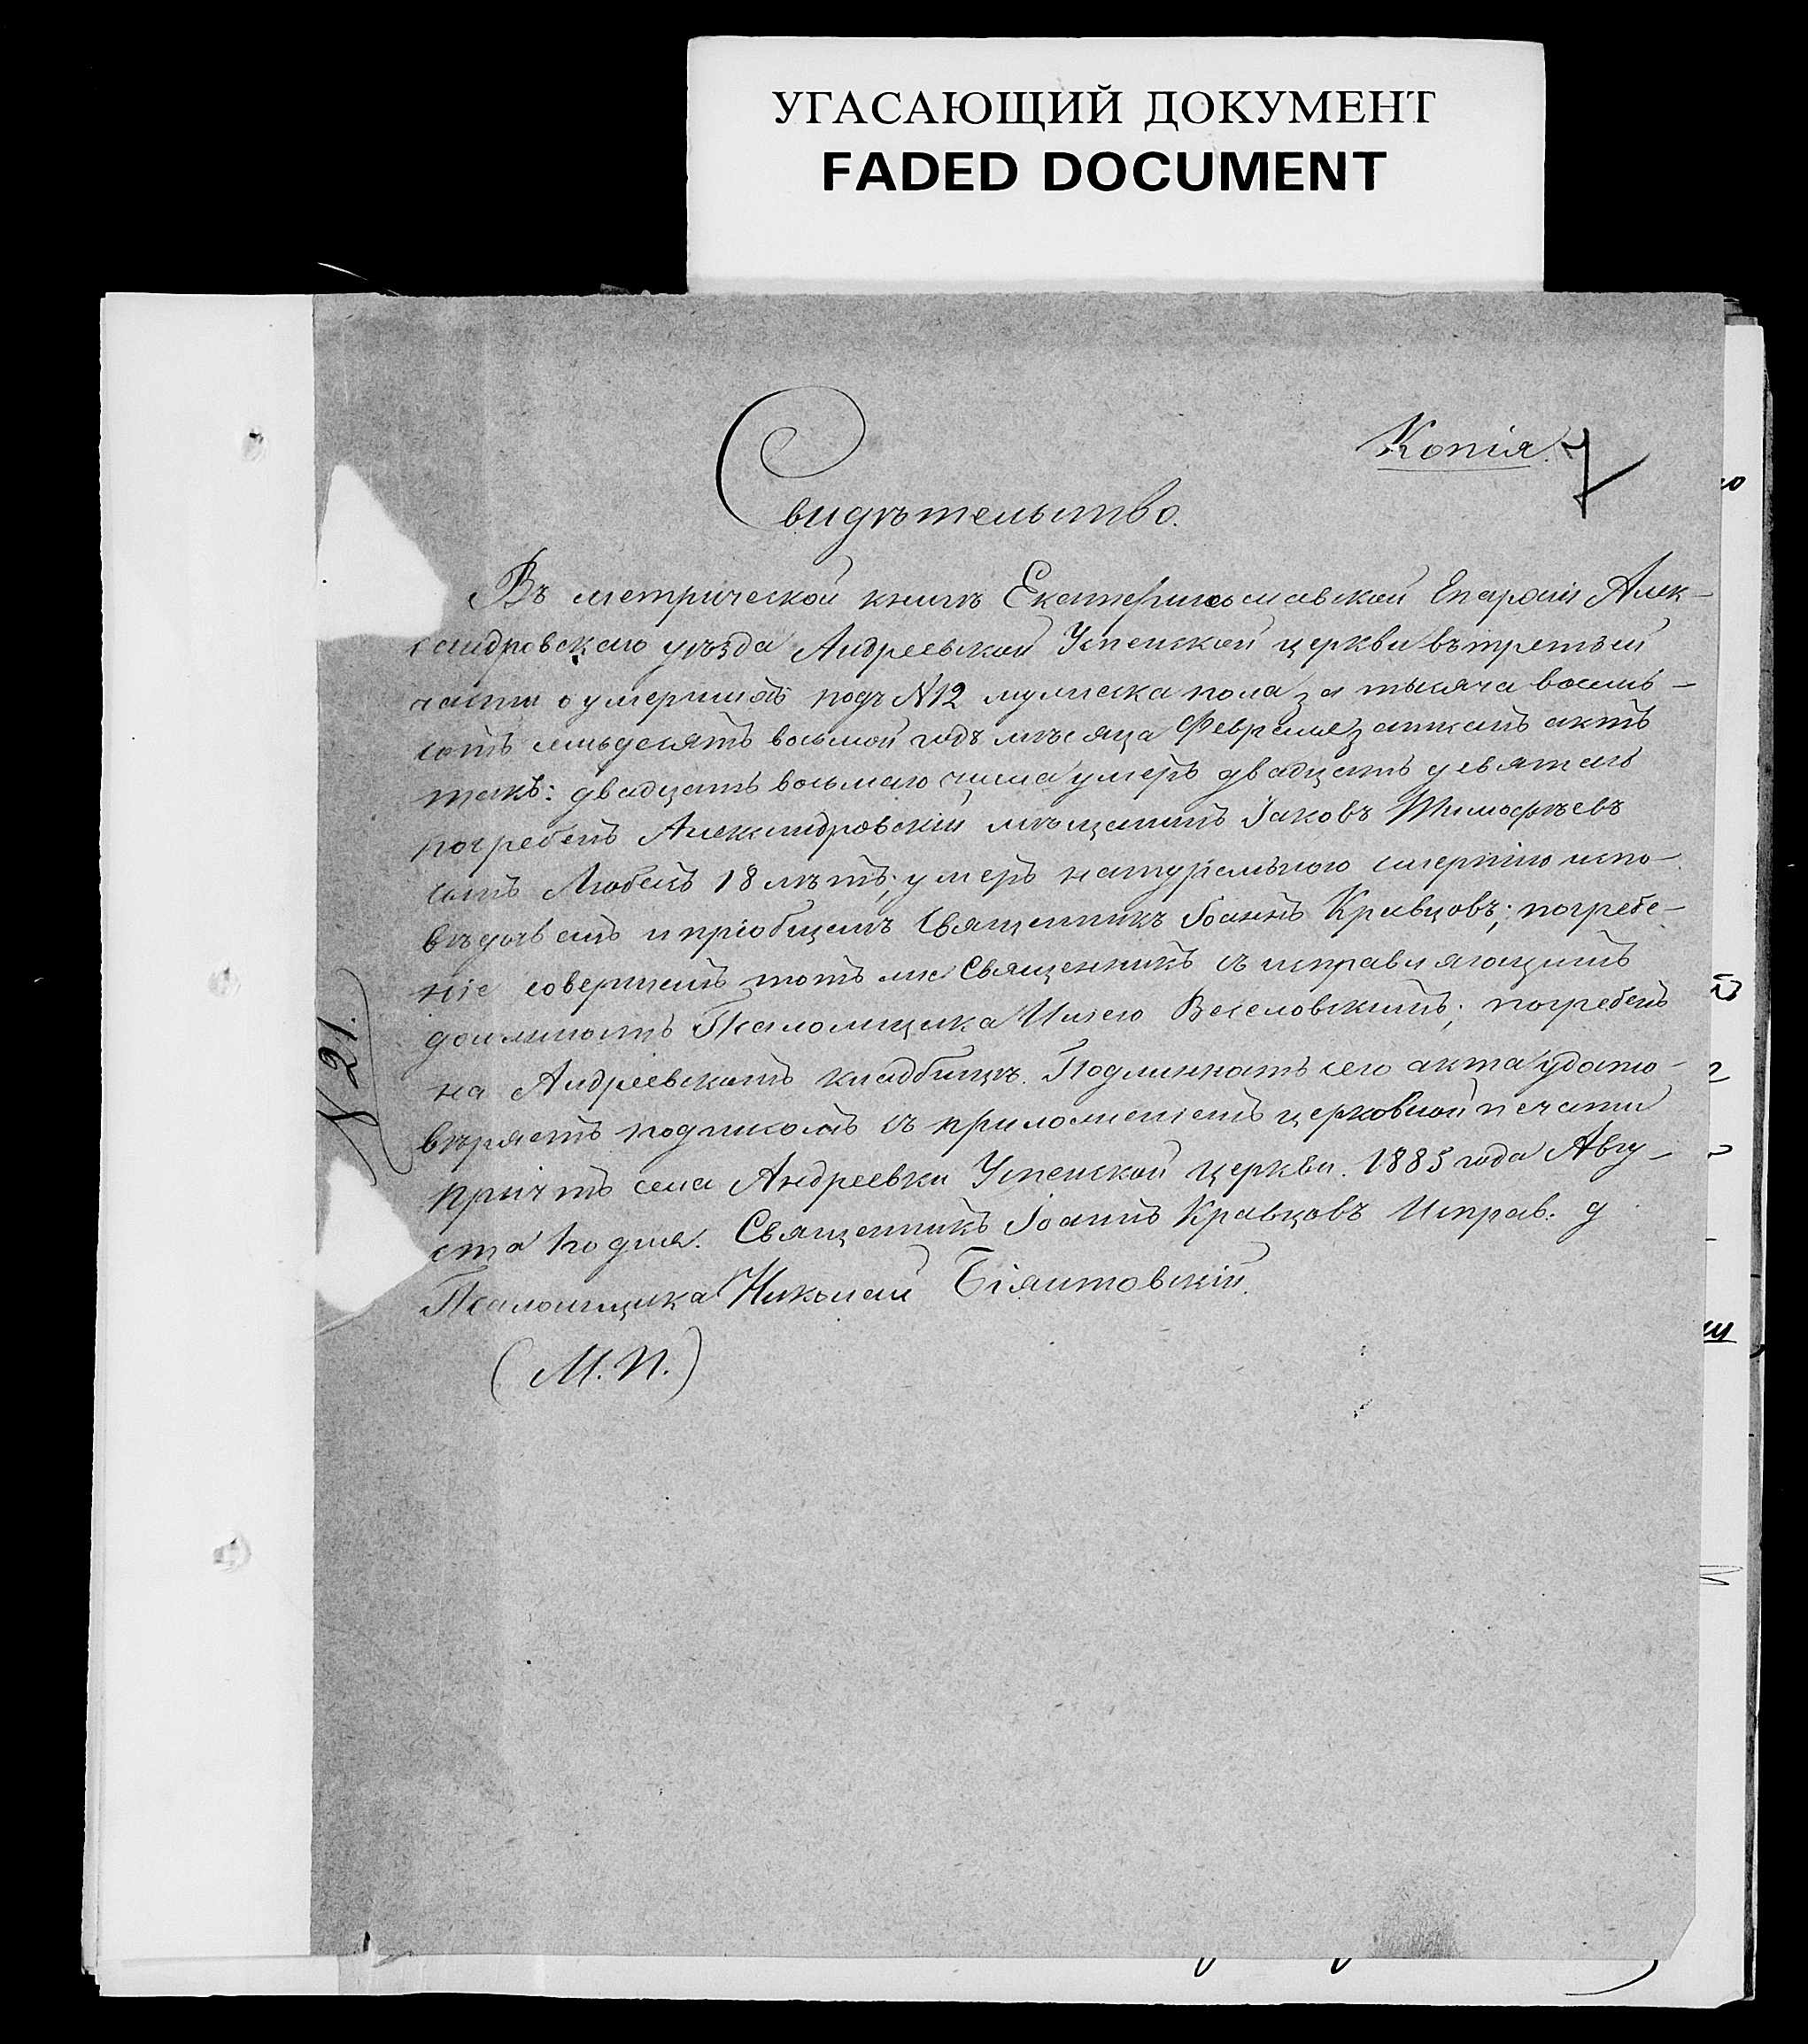 УГАСАЮЩИЙ ДОКУМЕНТ
FADED DOCUMENT
Копія. 7
Свидѣтельство.
Въ метрической книгѣ Екатеринославской Епархіи Алек-
сандровскаго уѣзда Андреевской Успенской церкви въ третьей
части о умершихъ подъ N12 мужеска пола за тысяча восемь-
сотъ семьдесятъ восьмой годъ мѣсяца Февраля записанъ актъ
такъ: двадцать восьмаго числа умеръ двадцать девятаго
погребенъ Александровскій мѣщанинъ Іаковъ Тимофѣевъ
сынъ 18 лѣтъ, умеръ натуральною смертію испо-
вѣдывалъ и пріобщалъ Священникъ Іоаннъ Кравцовъ; погребе-
ніе совершалъ тотъ же Священникъ съ исправляющимъ
должность Псаломщика Веселовскимъ; погребенъ
на Андреевскомъ кладбищѣ. Подлинность сего акта удосто-
вѣряетъ подписомъ съ приложеніемъ церковной печати
причтъ села Андреевки Успенской церкви. 1885 года Авгу-
ста дня. Священникъ Іоаннъ Кравцовъ Исправ: д
Псаломщика Николай
(М.П.)
21.